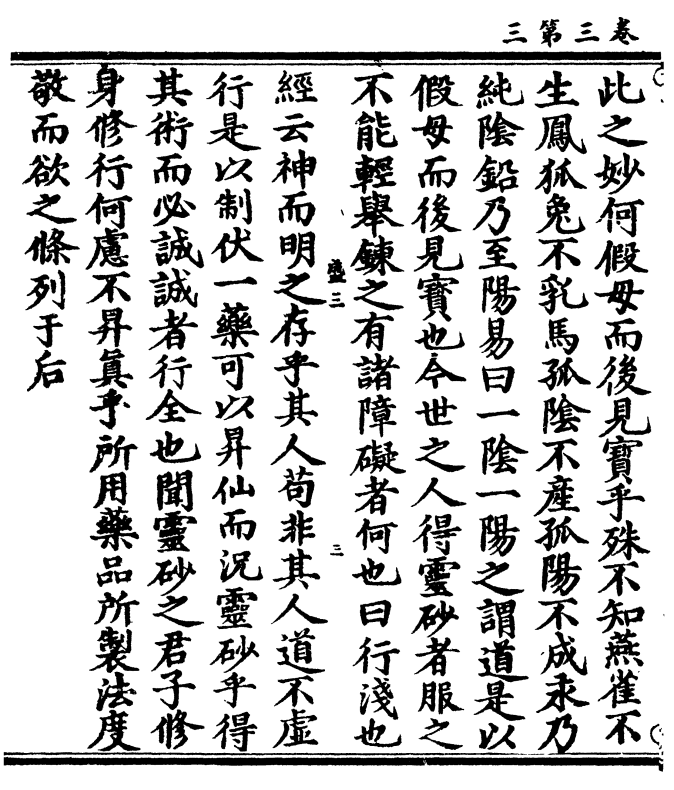 卷三第三
此之妙何假母而後見寶乎殊不知燕雀不
生鳳狐兔不乳馬孤陰不產孤陽不成汞乃
純陰鉛乃至陽易曰一陰一陽之謂道是以
假母而後見寶也今世之人得靈砂者服之
不能輕舉鍊之有諸障礙者何也曰行淺也
盛三
三
經云神而明之存乎其人苟非其人道不虛
行是以制伏一藥可以昇仙而況靈砂乎得
其術而必誠誠者行全也聞靈砂之君子修
身修行何慮不昇眞乎所用藥品所製法度
敬而欲之條列于后